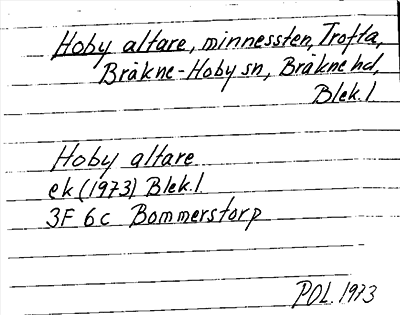 Hoby altare, minnessten, Trofta,
Bräkne-Hoby sn, Bräkne hd,
Blek. l
Hoby altare
ek (1973) Blek. l
3F 6c Bommerstorp
POL. 1973